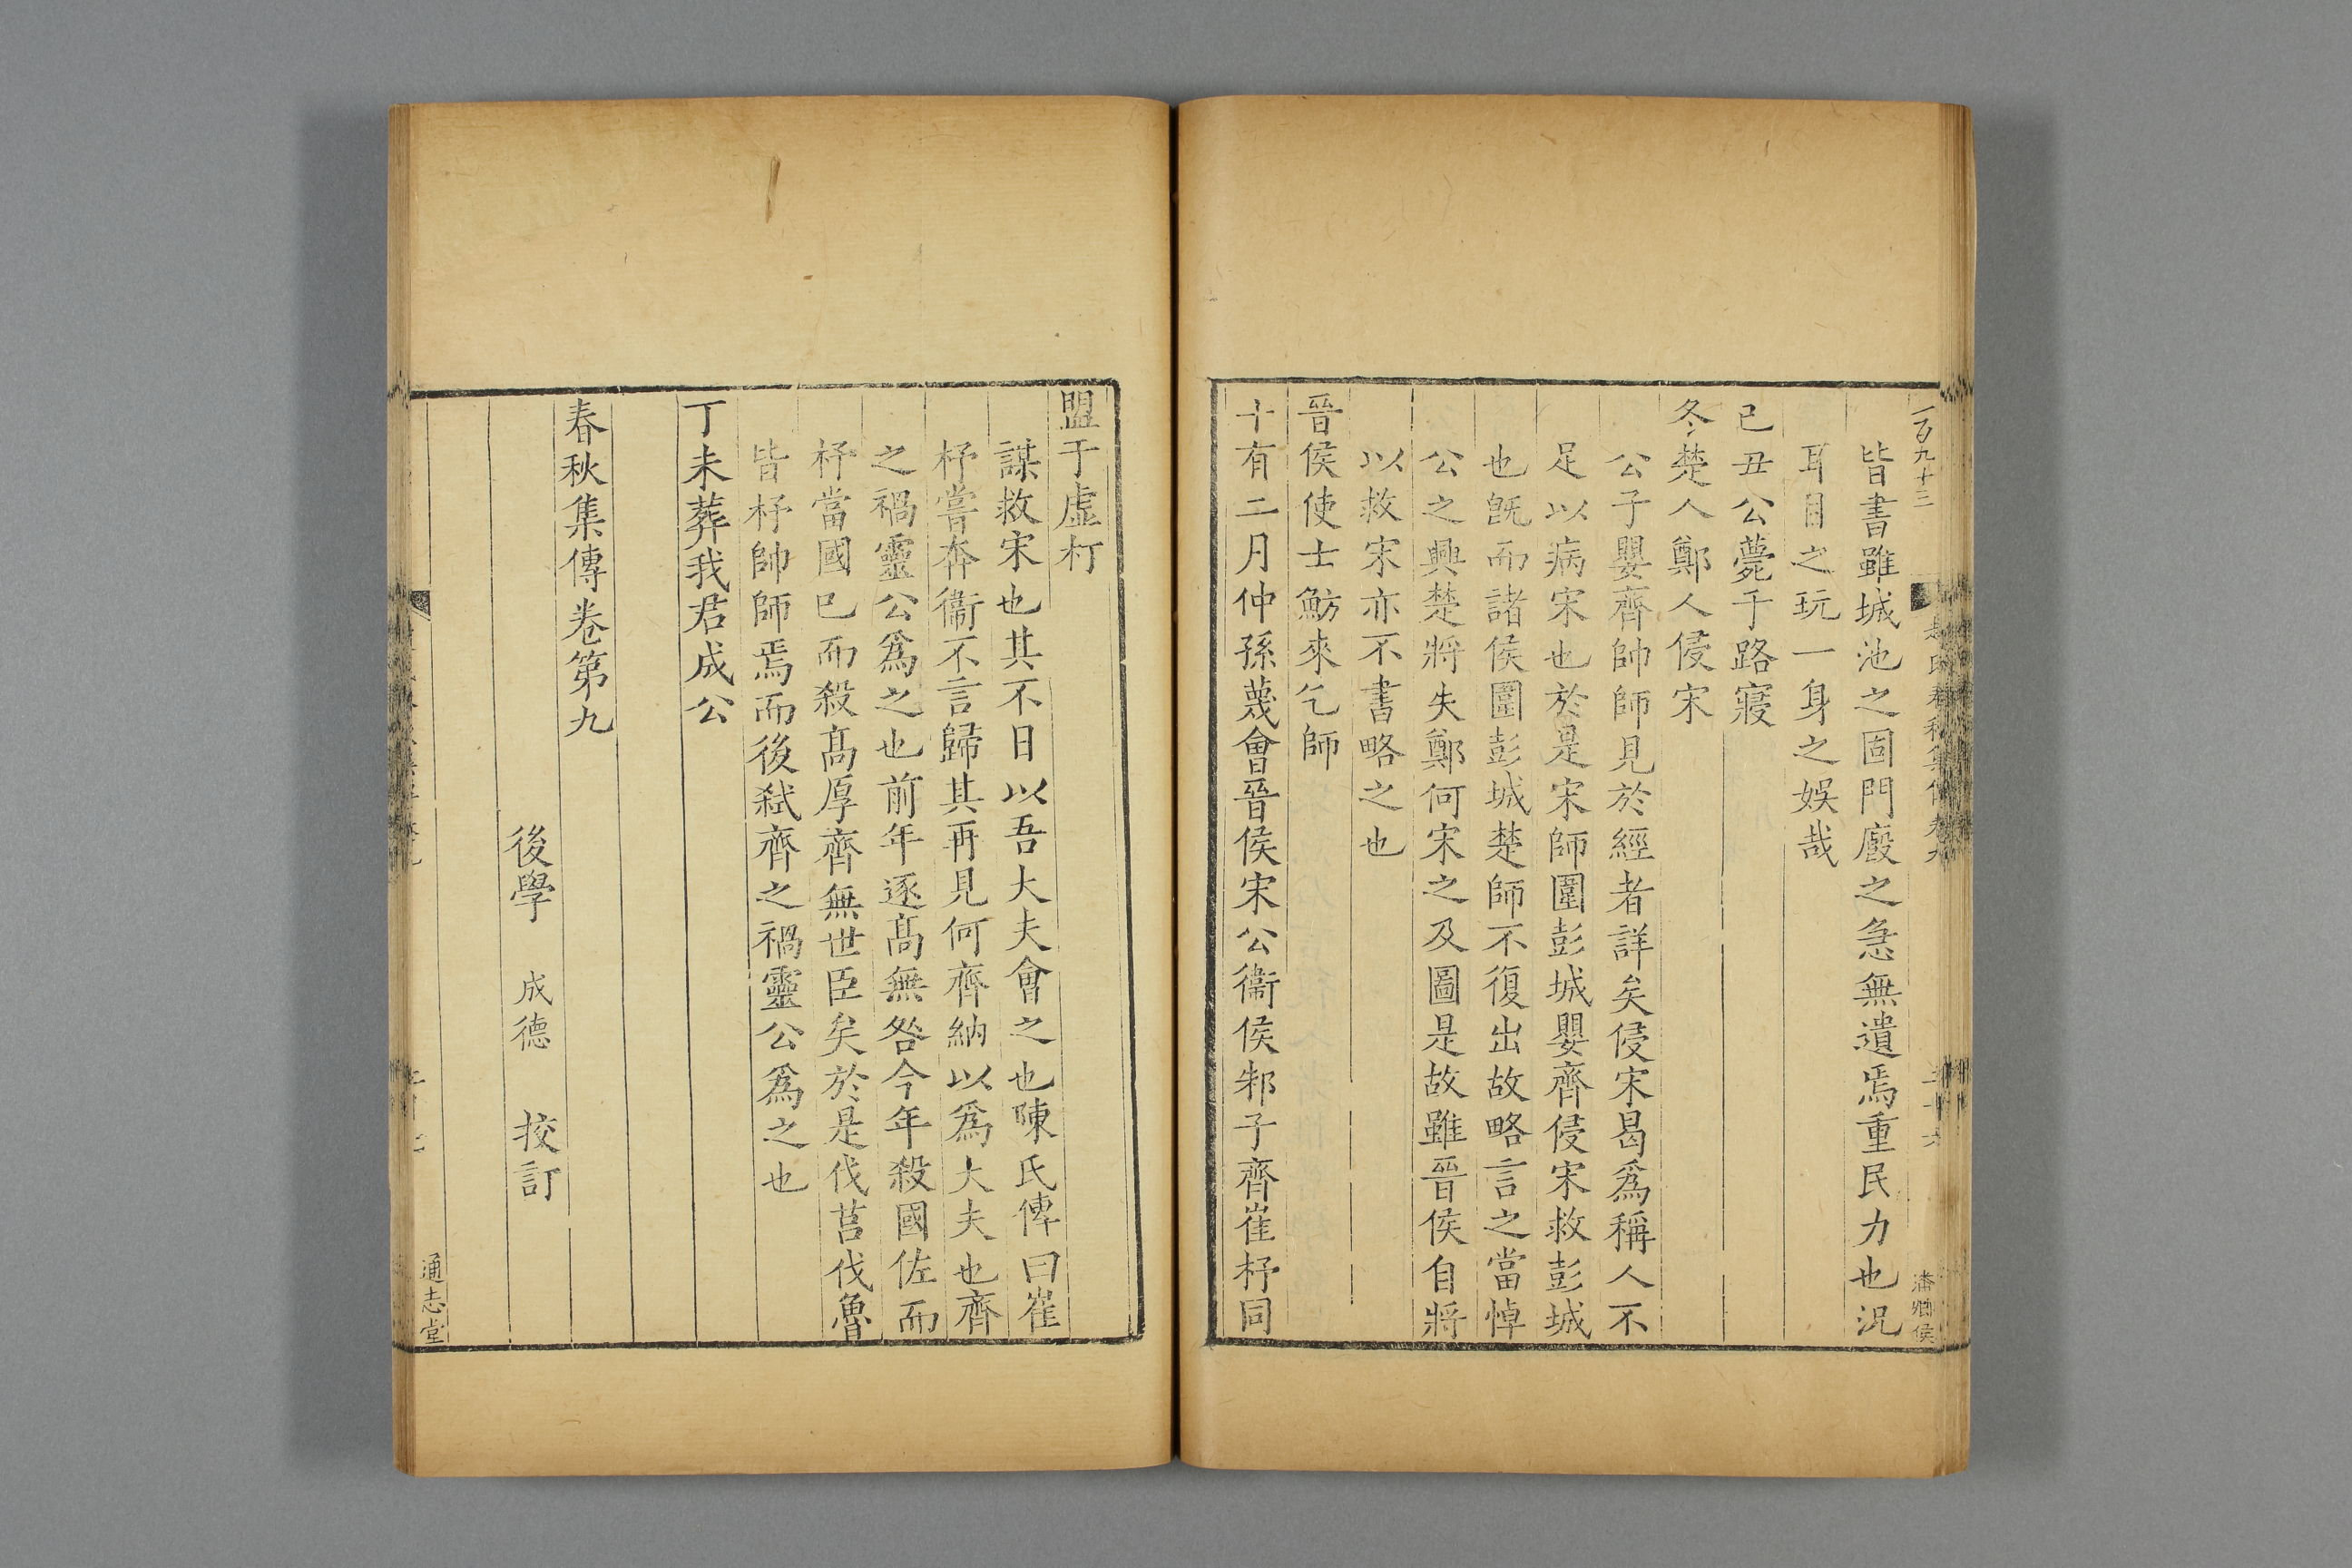 一百九十三
皆書雖城池之固門廄之急無遺焉重民力也況
耳目之玩一身之娛哉
己丑公薨于路寢
冬楚人鄭人侵宋
公子嬰齊帥師見於經者詳矣侵宋曷爲稱人不
足以病宋也於是宋師圍彭城嬰齊侵宋救彭城
也旣而諸侯圍彭城楚師不復出故略言之當悼
公之興楚將失鄭何宋之及圖是故雖晉侯自將
以救宋亦不書略之也
晉侯使士魴來乞師
十有二月仲孫蔑會晉侯宋公衞侯邾子齊崔杼同
盟于虛朾
謀救宋也其不日以吾大夫會之也陳氏傳曰崔
杼嘗奔衞不言歸其再見何齊納以爲大夫也齊
之禍靈公爲之也前年逐髙無咎今年殺國佐而
杼當國已而殺髙厚齊無世臣矣於是伐莒伐魯
皆杼帥師焉而後弑齊之禍靈公爲之也
丁未葬我君成公
春秋集傳卷第九
後學 成德 挍訂
通志堂